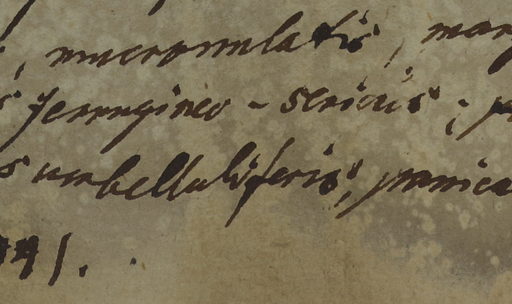 , mucronulatis, mar
s ferrugineo-sericeis; p
s umbelluliferis, panica
41.